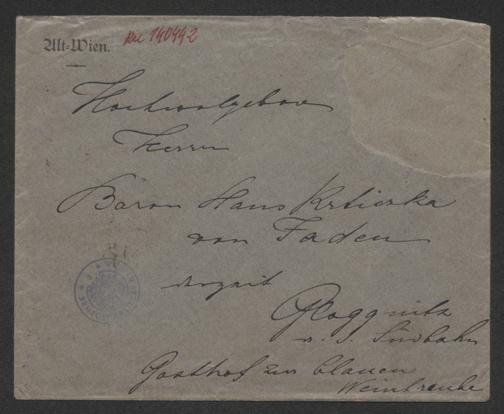 Alt-Wien.
au 140442
Hochwolgeborn
Herrn
Baron Hans Krticzka
von Jaden
derzeit
Gloggnitz
a. d. Südbahn
Gasthof zur blauen
Weintraube